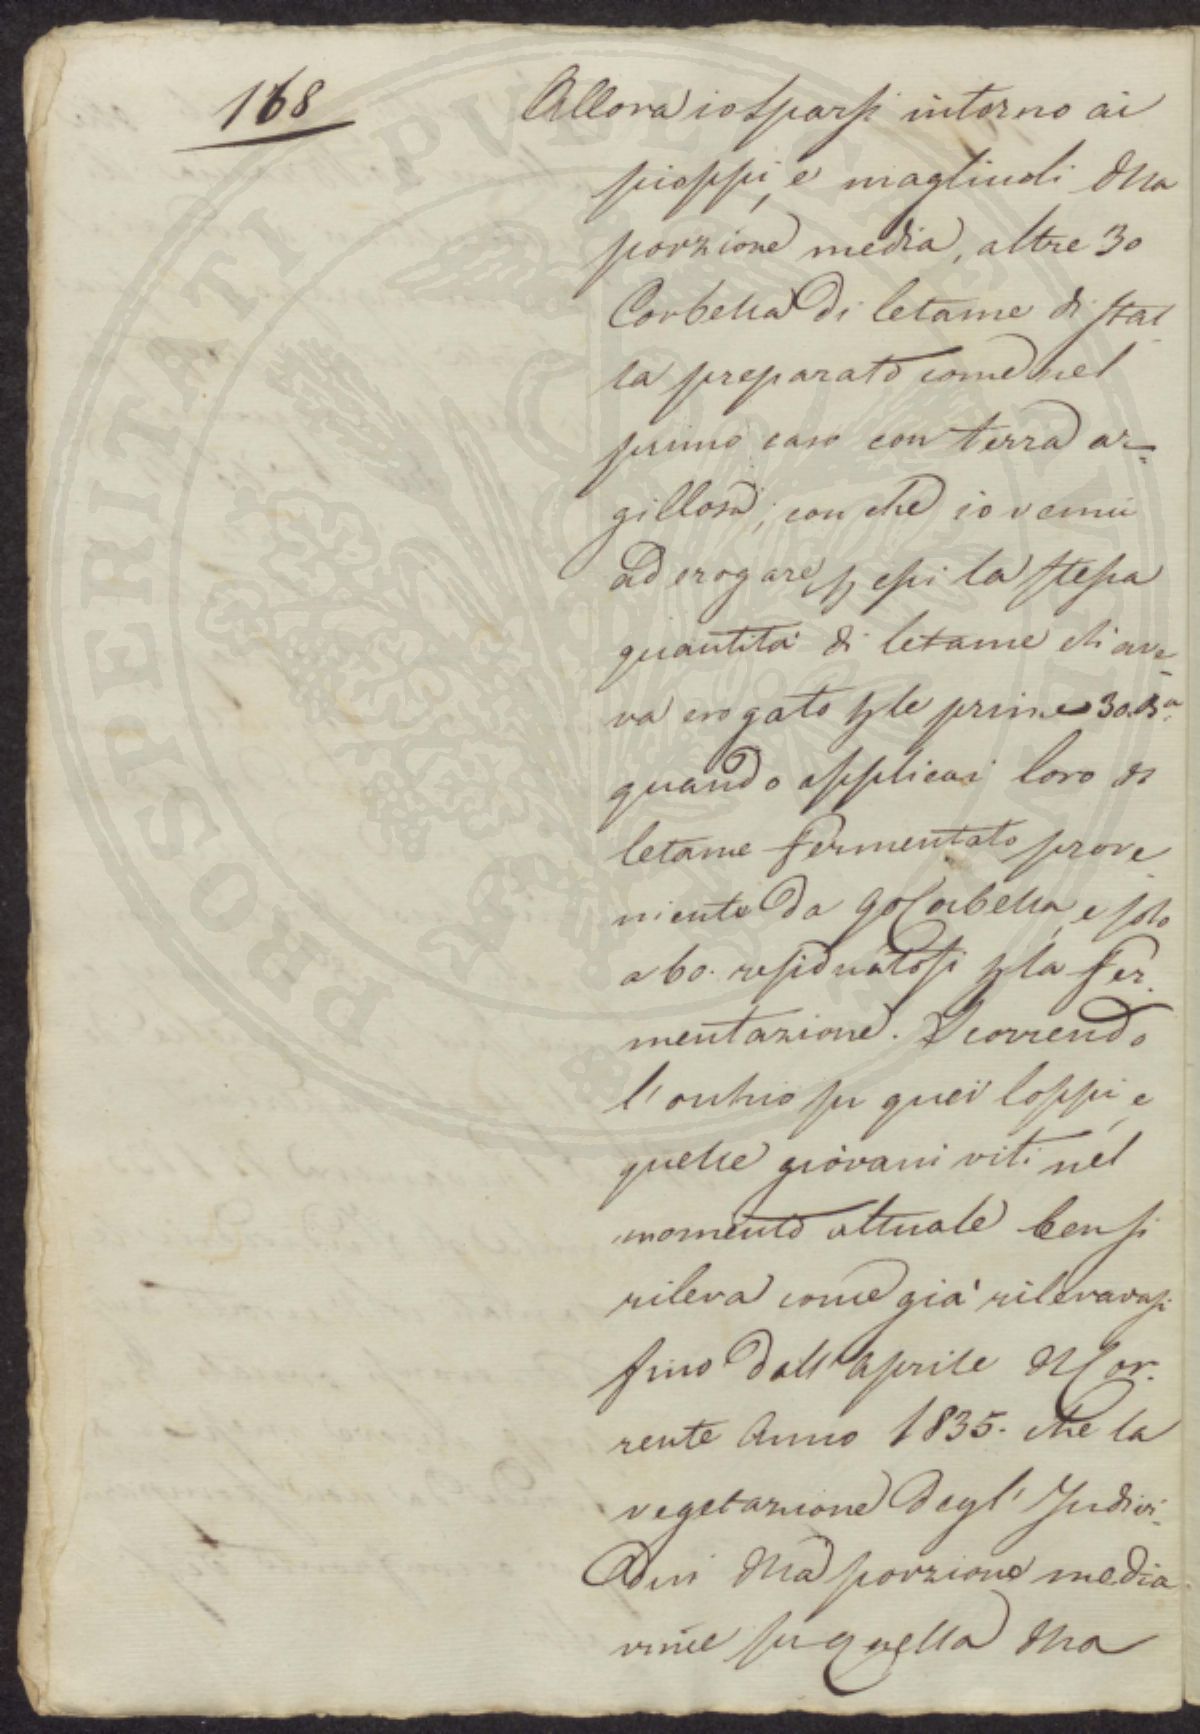 168
Allora io sparsi intorno ai
pioppi, e magliuoli dlla
porzione media, altre 30
Corbella di letame di stal
la preparato come nel
primo caso con terra ar=
gillosa; con che io venni
ad erogare p essi la stessa
quantità di letame ch'ave=
va erogato p le prime 30.
quando applicai loro di
letame fermentato prove
niente da 90 Corbella, e solo
a 60. residuatosi p la fer.
mentazione. Scorrendo
l'occhio su quei loppi, e
quelle giovani viti nel
momento attuale ben si
rileva come già rilevavasi
fino dall'Aprile dl Cor.
rente Anno 1835. che la
vegetazione degl' Indivi.
dui dlla porzione media
vince su quella dlla
PROSPERITATI PVBLICAE